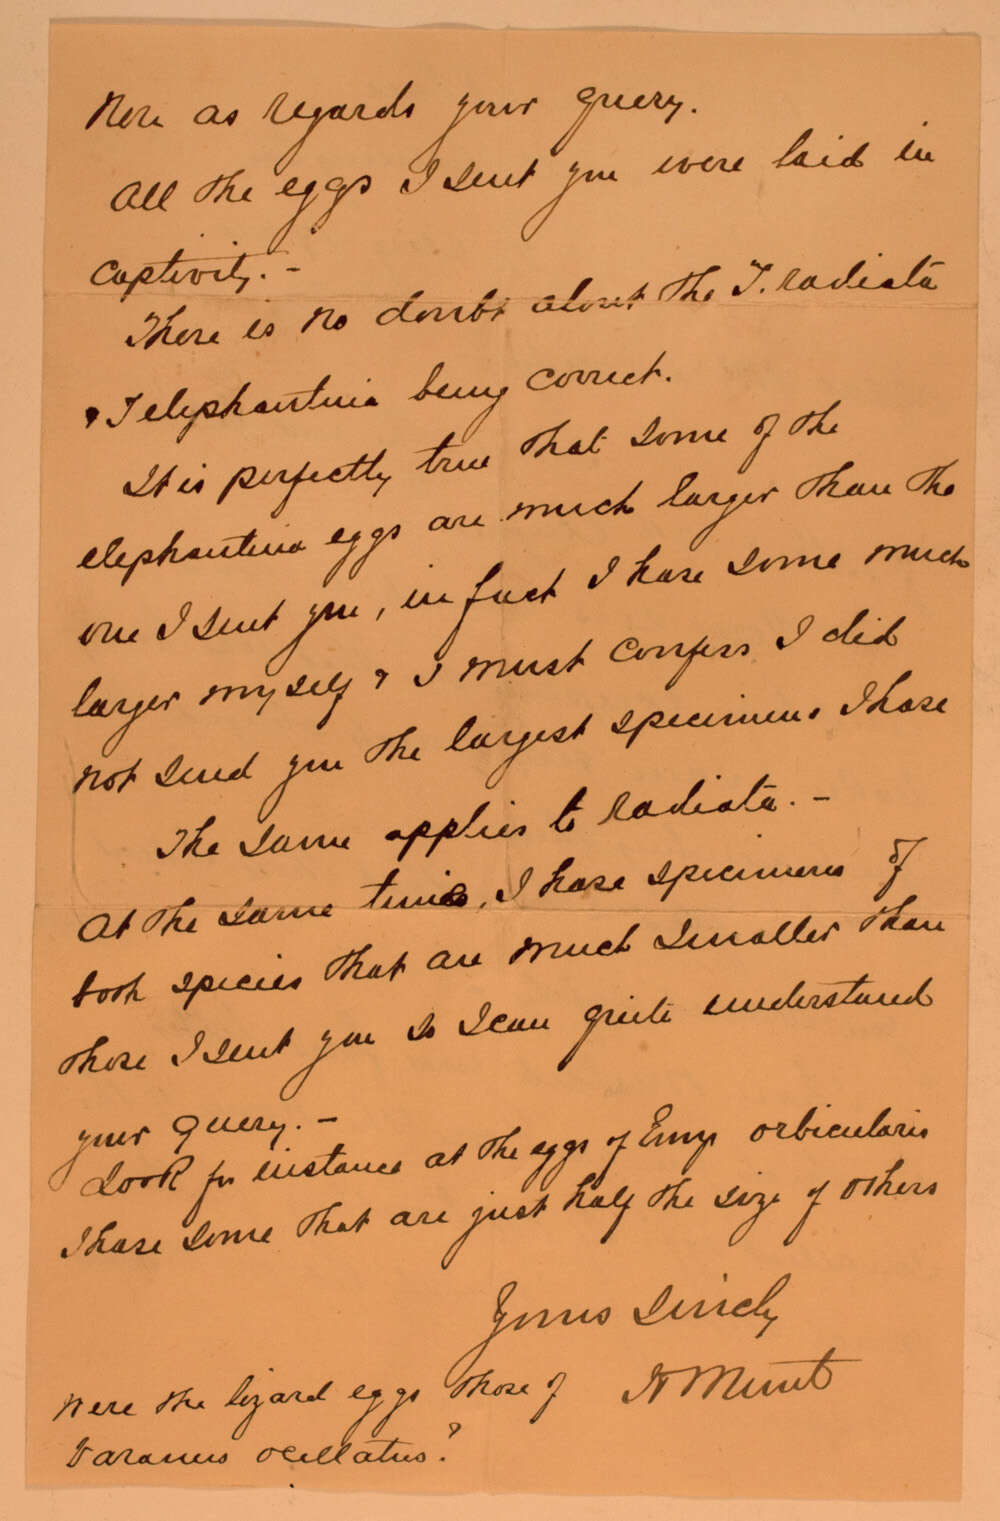 Now as regards your query.
All the eggs I sent you were laid in
captivity. -
There is no doubt about the T. radiata
& T elephantina being correct.
It is perfectly true that some of the
elephantina eggs are much larger than the
one I sent you, in fact I have some much
larger myself & I must confess I did
not send you the largest specimens I have
The same applies to radiata. -
At the same time, I have specimens of
both species that are much smaller than
those I sent you so I can quite understand
your query. -
Look for instance at the eggs of Emys orbicularis
I have some that are just half the size of others
Yours Sincly
H Munt
Were the lizard eggs those of
Varanus ocellatus?